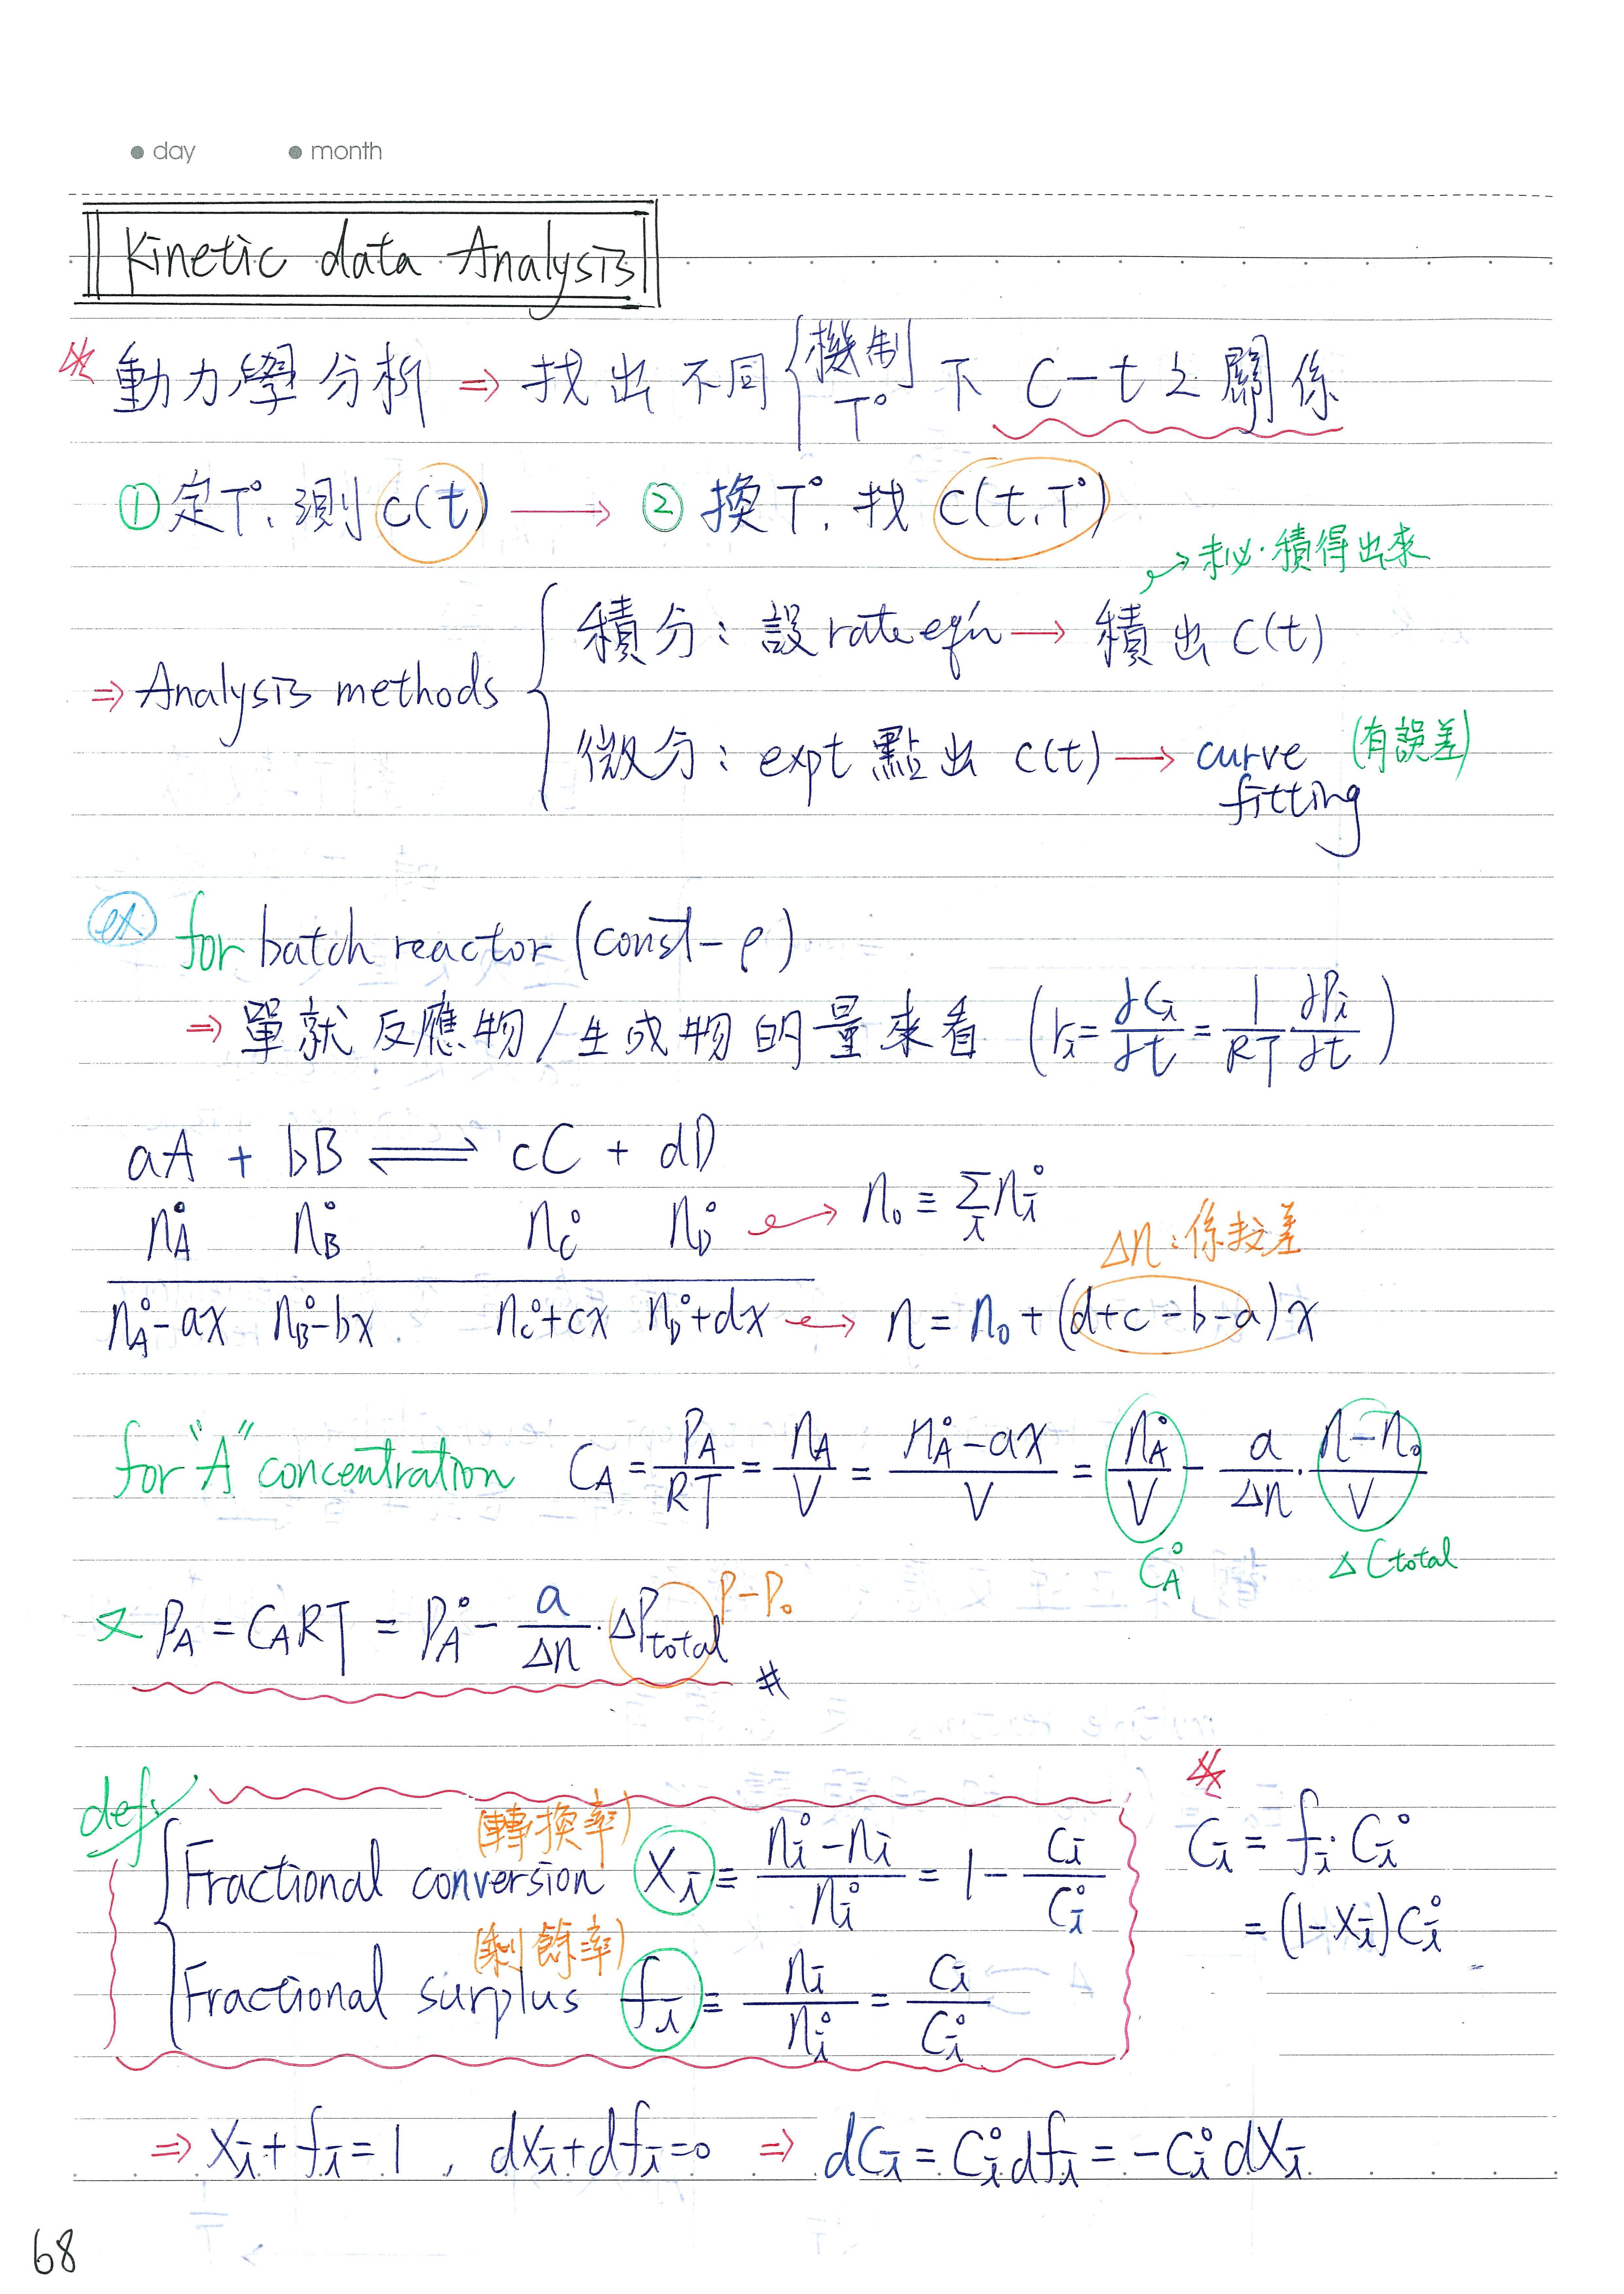 day month
Kinetic data Analysis
動力學分析 ⇒ 找出不同 { 機制 T° 下 C-t 之關係
① 定T°, 測 c(t) → ② 換T°, 找 c(t, T°)
→ 未必積得出來
⇒ Analysis methods
積分: 設 rate eq'n → 積出 C(t)
微分: expt 點出 c(t) → curve fitting (有誤差)
ex. for batch reactor (const-ρ)
⇒ 單就反應物/生成物的量來看 (rᵢ = dCᵢ/dt = 1/RT · dPᵢ/dt)
aA + bB ⇌ cC + dD
n°A n°B n°C n°D → n₀ ≡ Σᵢ nᵢ°
Δn: 係數差
n°A-ax n°B-bx n°C+cx n°D+dx → n = n₀ + (d+c-b-a)x
for "A" concentration C_A = P_A/RT = n_A/V = (n°A-ax)/V = n°A/V - a/Δn · (n-n₀)/V
C°A ΔCtotal
又 P_A = C_A RT = P°A - a/Δn · ΔPtotal P-P₀ #
def:
(轉換率)
Fractional conversion Xᵢ ≡ (nᵢ°-nᵢ)/nᵢ° = 1 - Cᵢ/Cᵢ°
(剩餘率)
Fractional surplus fᵢ ≡ nᵢ/nᵢ° = Cᵢ/Cᵢ°
Cᵢ = fᵢ·Cᵢ°
= (1-Xᵢ)Cᵢ°
⇒ Xᵢ+fᵢ=1, dXᵢ+dfᵢ=0 ⇒ dCᵢ = Cᵢ°dfᵢ = -Cᵢ°dXᵢ
68